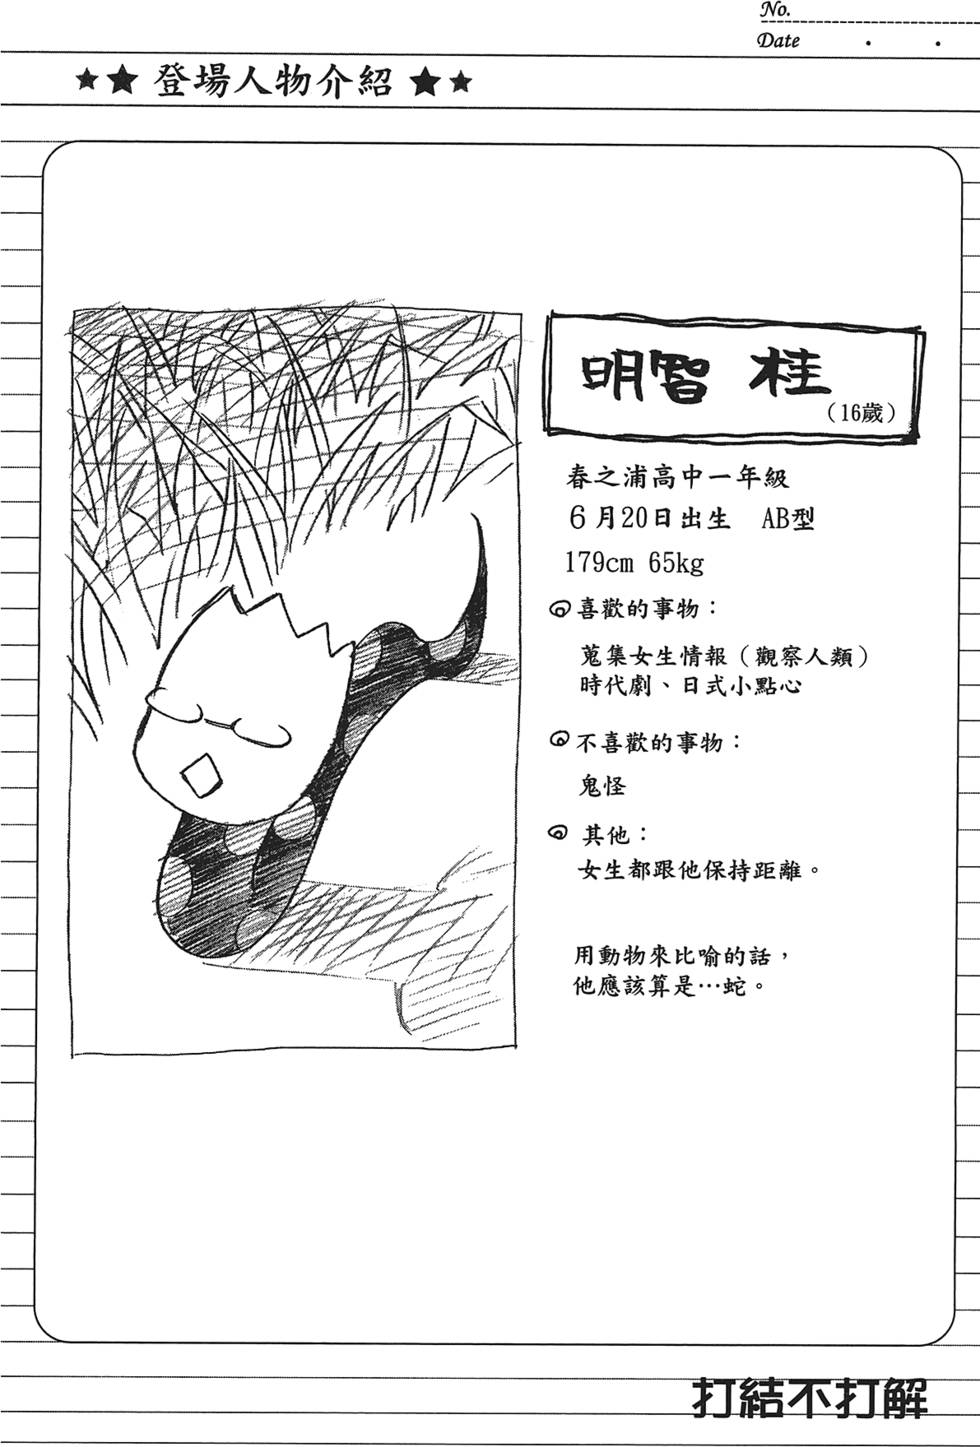 No.
Date . .
★★ 登場人物介紹 ★★
明智 桂
（16歲）
春之浦高中一年級
6月20日出生 AB型
179cm 65kg
喜歡的事物：
蒐集女生情報（觀察人類）
時代劇、日式小點心
不喜歡的事物：
鬼怪
其他：
女生都跟他保持距離。
用動物來比喻的話，
他應該算是…蛇。
打結不打解